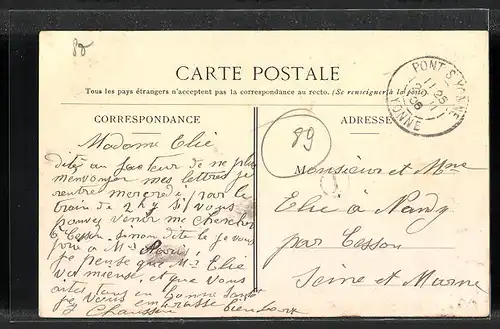 80
CARTE POSTALE
Tous les pays étrangers n'acceptent pas la correspondance au recto. (Se renseigner à la poste)
CORRESPONDANCE
ADRESSE
PONT S YONNE
YONNE
11 25
06
89
Madame Elie
dite au facteur de ne plus
m'envoyer mes lettres je
rentre mercredi par le
train de 2 h si vous
pouvez venir me chercher
a Cesson sinon dite le je vous
prie à Mr
je pense que Mr Elie
va mieux et que vous
ette tous en bonne santé
je vous embrasse
bien
Monsieur et Mme
Elie à Nandy
par Cesson
Seine et Marne